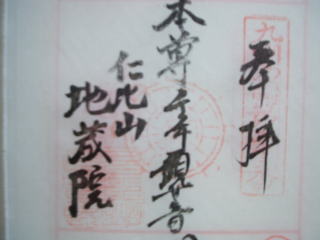 奉拝
本尊千手観世音
仁比山
地蔵院